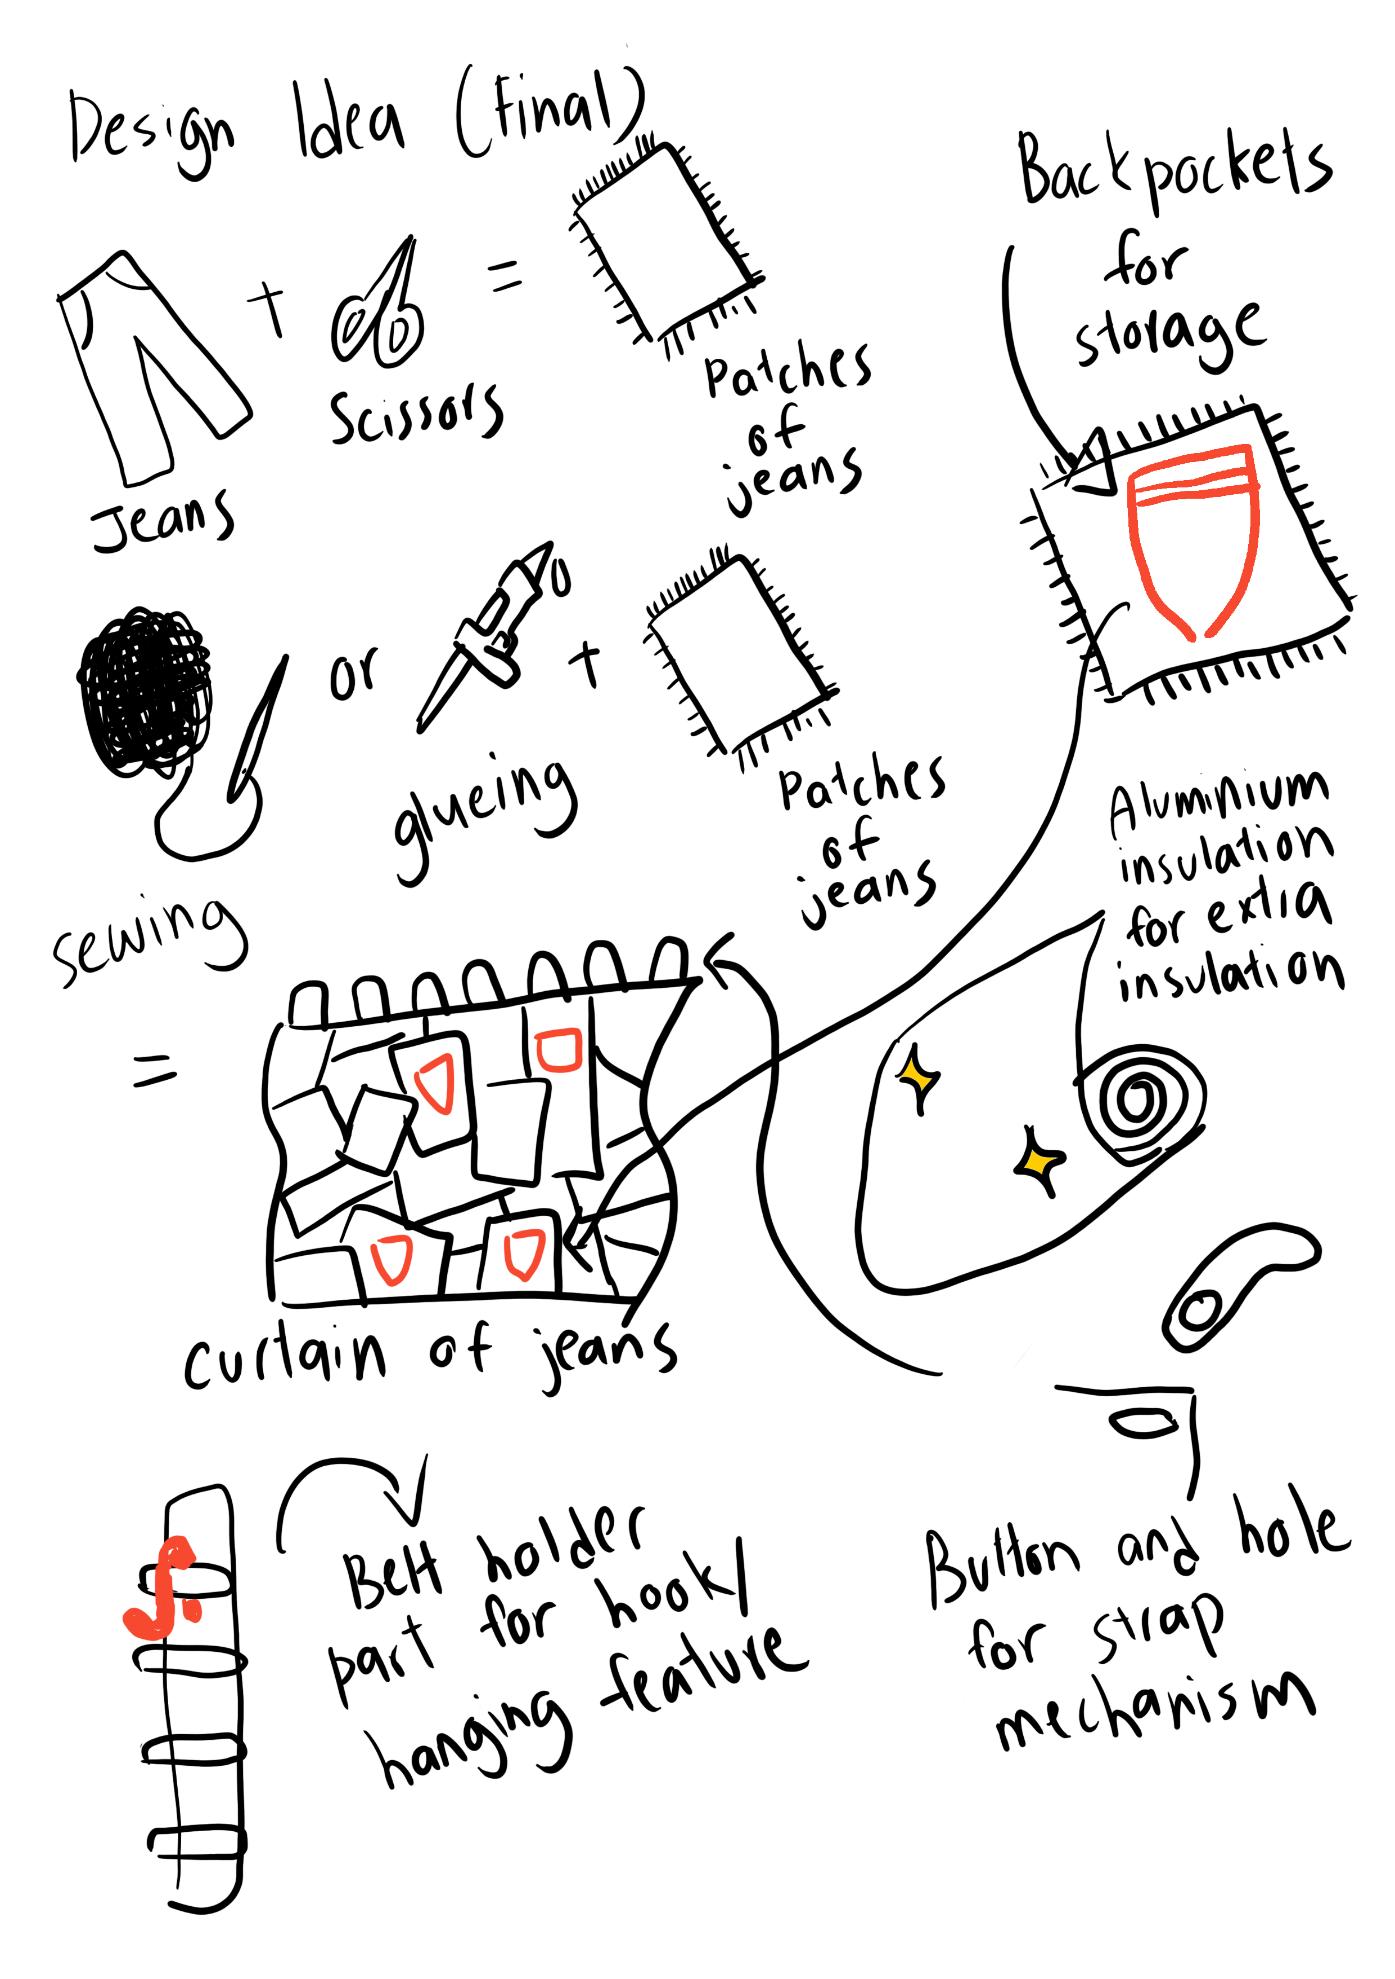 Design Idea (Final)
Jeans
+
Scissors
=
Patches
of
jeans
Backpockets
for
storage
sewing
or
glueing
+
Patches
of
jeans
=
curtain of jeans
Aluminium
insulation
for extra
insulation
Belt holder
part for hook/
hanging feature
Button and hole
for strap
mechanism